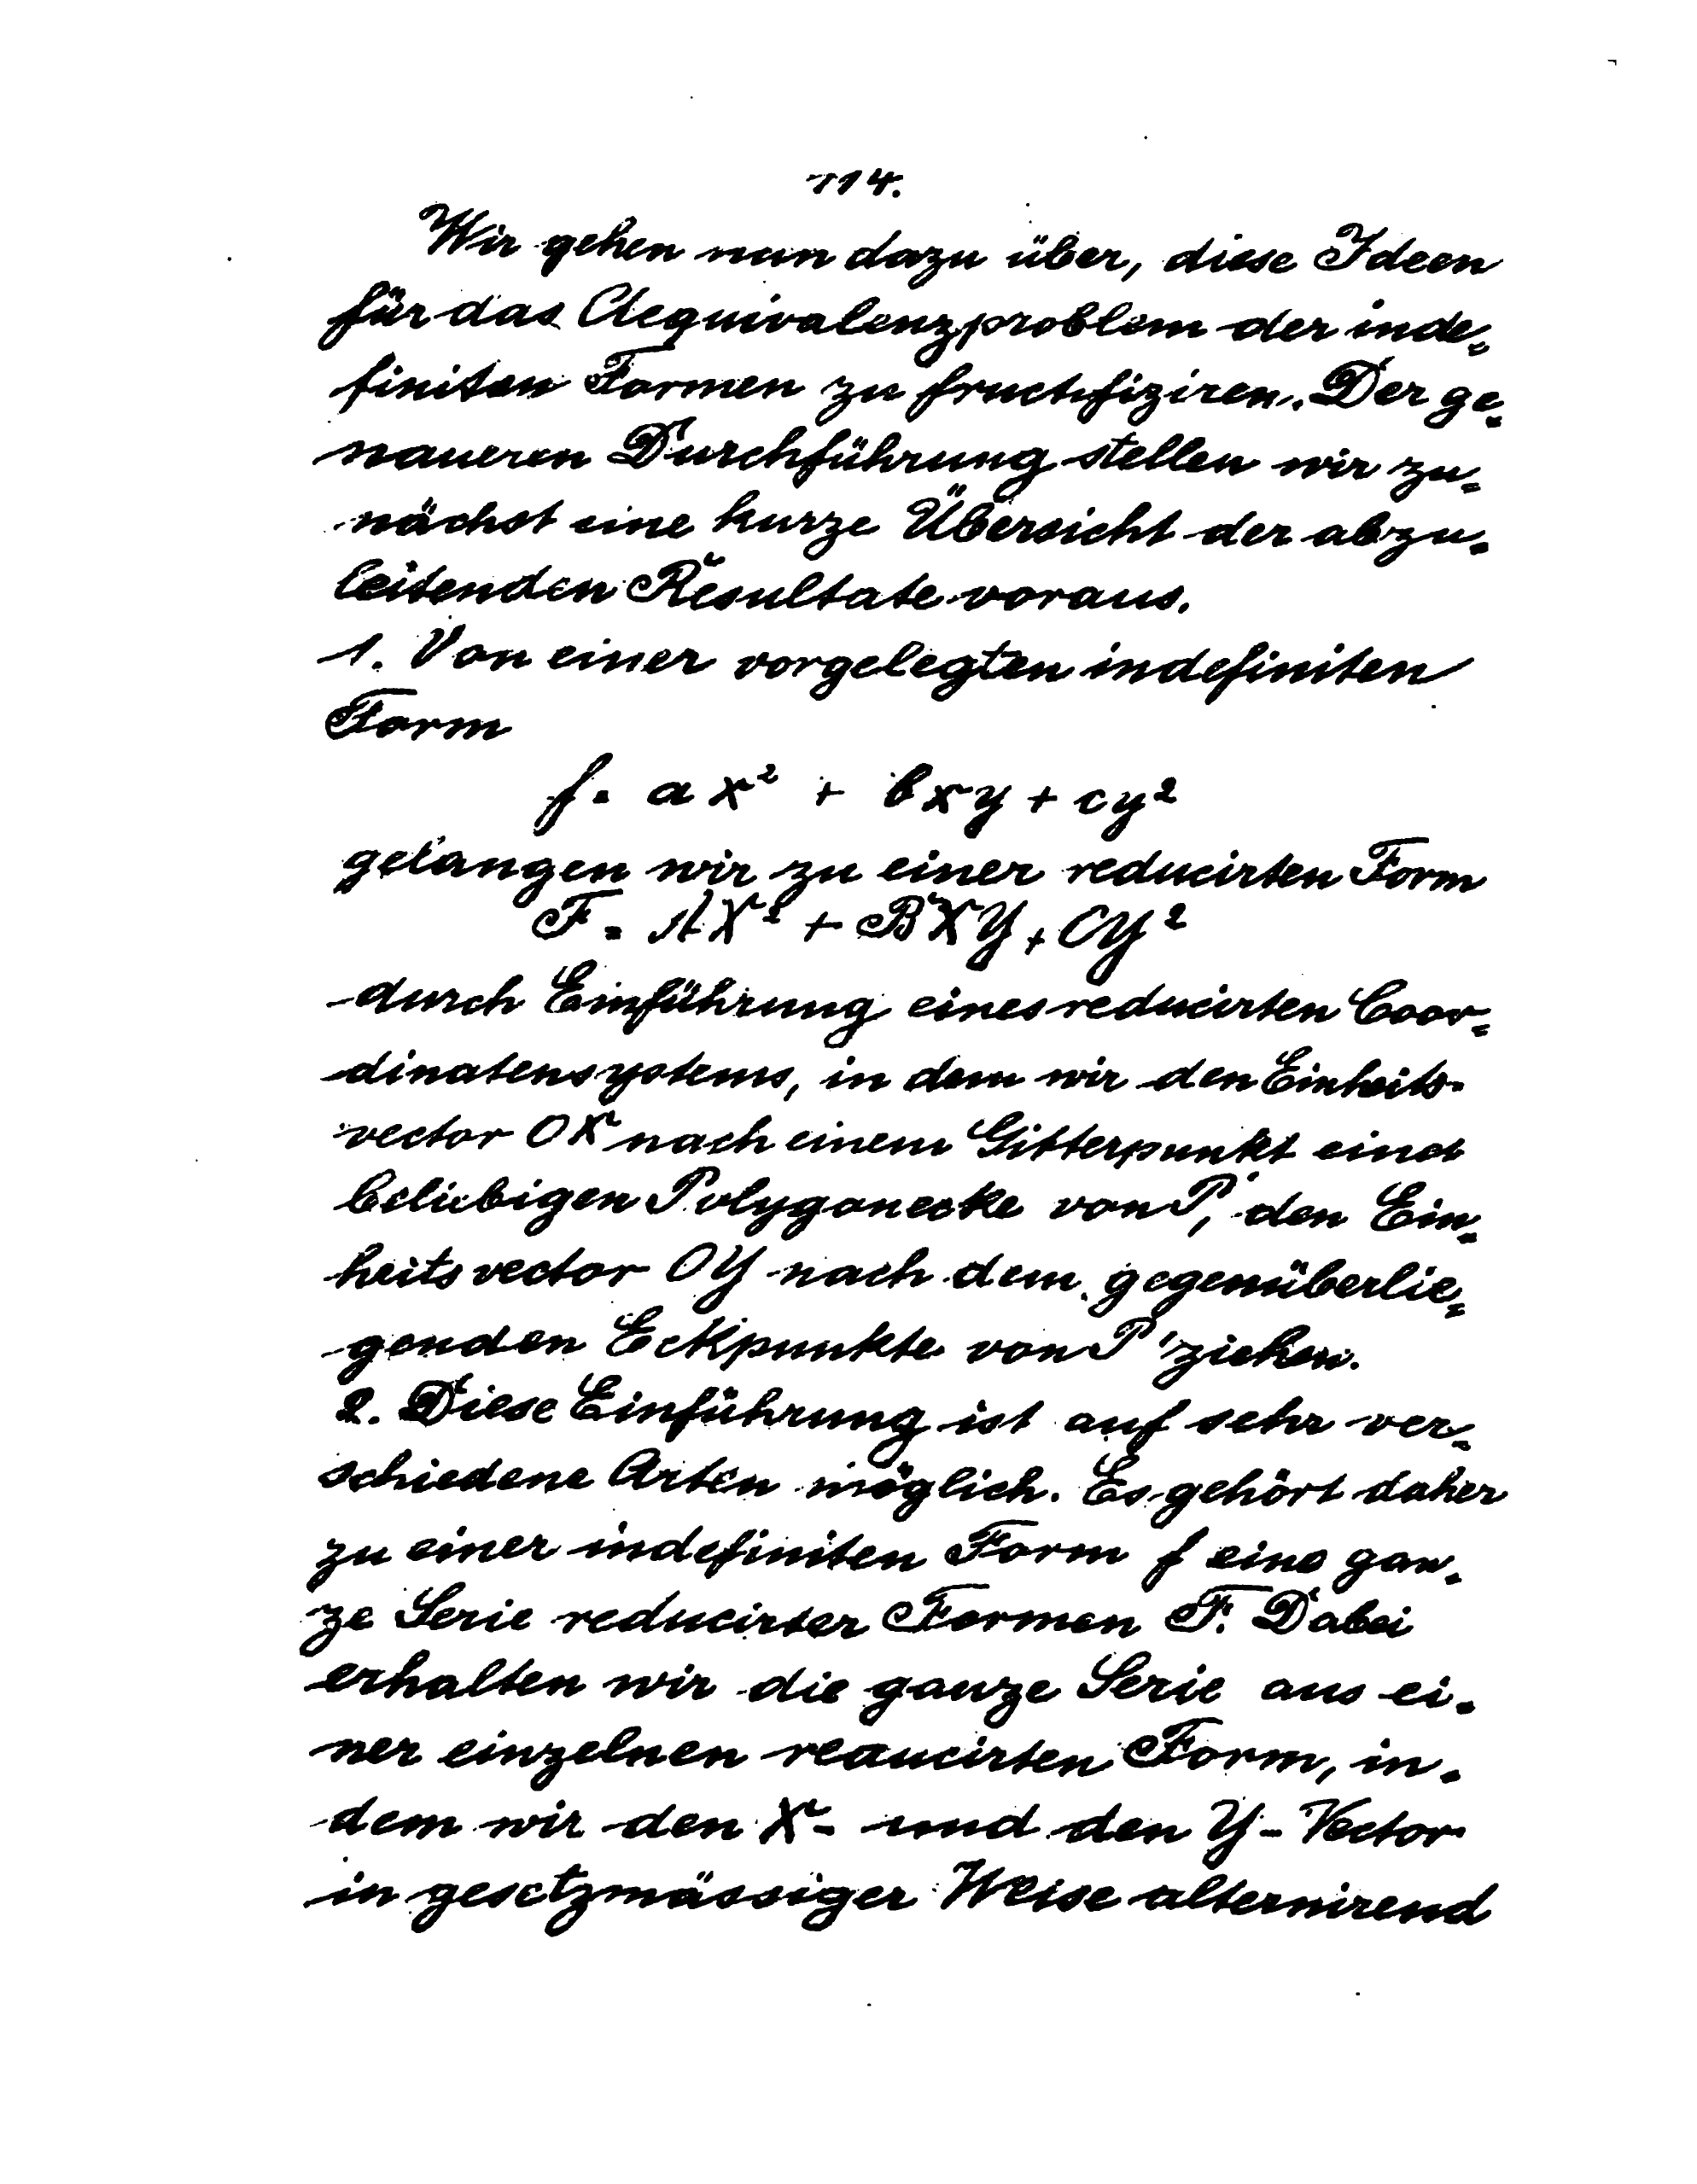 114.
Wir gehen nun dazu über, diese Ideen
für das Aequivalenzproblem der inde-
finiten Formen zu fructifiziren. Der ge-
naueren Durchführung stellen wir zu-
nächst eine kurze Übersicht der abzu-
leitenden Resultate voraus.
1. Von einer vorgelegten indefiniten
Form
f = ax² + bxy + cy²
gelangen wir zu einer reducirten Form
F = AX² + BXY + CY²
durch Einführung eines reducirten Coor-
dinatensystems, in dem wir den Einheits-
vector OX nach einem Gitterpunkt einer
beliebigen Polygonecke von P, den Ein-
heitsvector OY nach dem gegenüberlie-
genden Eckpunkte von P' ziehen.
2. Diese Einführung ist auf sehr ver-
schiedene Arten möglich. Es gehört daher
zu einer indefiniten Form f eine gan-
ze Serie reducirter Formen F. Dabei
erhalten wir die ganze Serie aus ei-
ner einzelnen reducirten Form, in-
dem wir den X- und den Y-Vector
in gesetzmässiger Weise alternirend